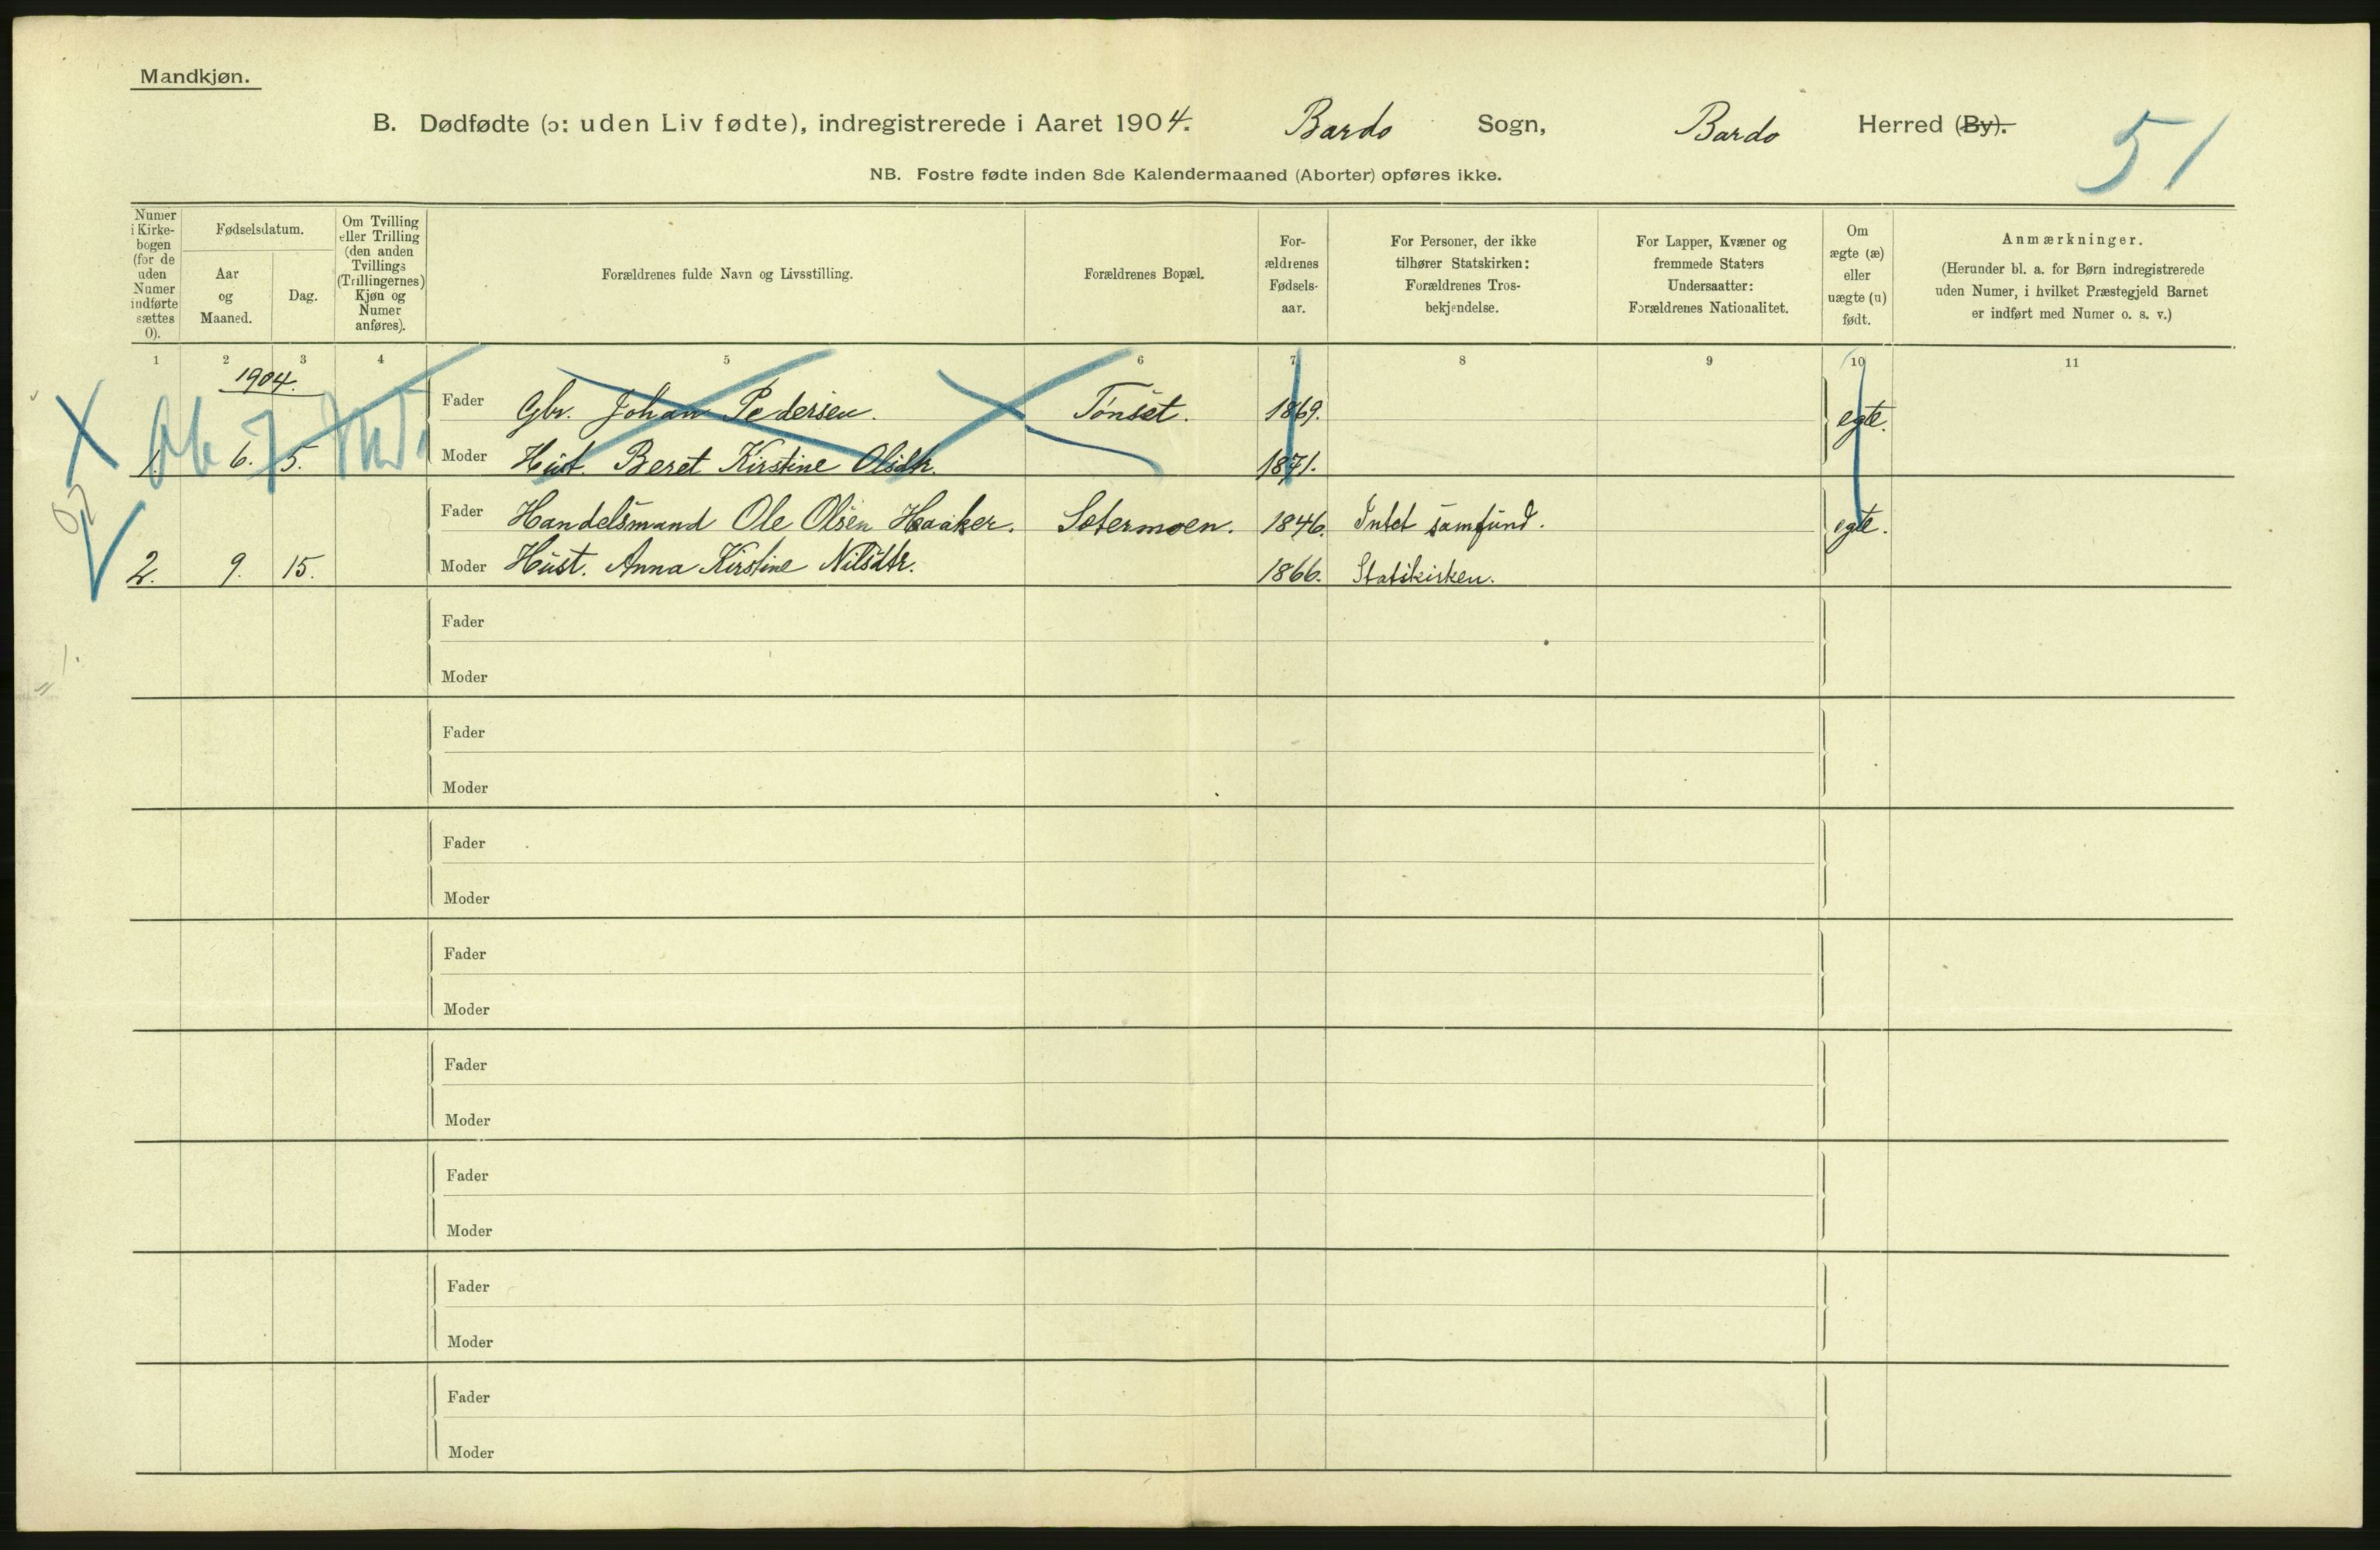 Mandkjøn.
B. Dødfødte (ɔ: uden Liv fødte), indregistrerede i Aaret 1904. Bardo Sogn, Bardo Herred (By).
51
NB. Fostre fødte inden 8de Kalendermaaned (Aborter) opføres ikke.
Numer
i Kirke-
bogen
(for de
uden
Numer
indførte
sættes
0).
Fødselsdatum.
Aar
og
Maaned.
Dag.
Om Tvilling
eller Trilling
(den anden
Tvillings
(Trillingernes)
Kjøn og
Numer
anføres).
Forældrenes fulde Navn og Livsstilling.
Forældrenes Bopæl.
For-
ældrenes
Fødsels-
aar.
For Personer, der ikke
tilhører Statskirken:
Forældrenes Tros-
bekjendelse.
For Lapper, Kvæner og
fremmede Staters
Undersaatter:
Forældrenes Nationalitet.
Om
ægte (æ)
eller
uægte (u)
født.
Anmærkninger.
(Herunder bl. a. for Børn indregistrerede
uden Numer, i hvilket Præstegjeld Barnet
er indført med Numer o. s. v.)
1 2 3 4 5 6 7 8 9 10 11
1904.
Fader Gbr. Johan Pedersen. Tönset. 1869. egte.
1. 6. 5. Moder Hust. Beret Kirstine Olsdtr. 1871.
Fader Handelsmand Ole Olsen Haaker. Setermoen. 1846. Intet samfund. egte.
2. 9. 15. Moder Hust. Anna Kirstine Nilsdtr. 1866. Statskirken.
Fader
Moder
Fader
Moder
Fader
Moder
Fader
Moder
Fader
Moder
Fader
Moder
Fader
Moder
Fader
Moder